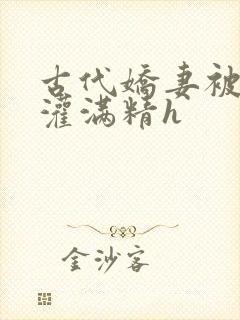 古代娇妻被
灌满精h
金沙客